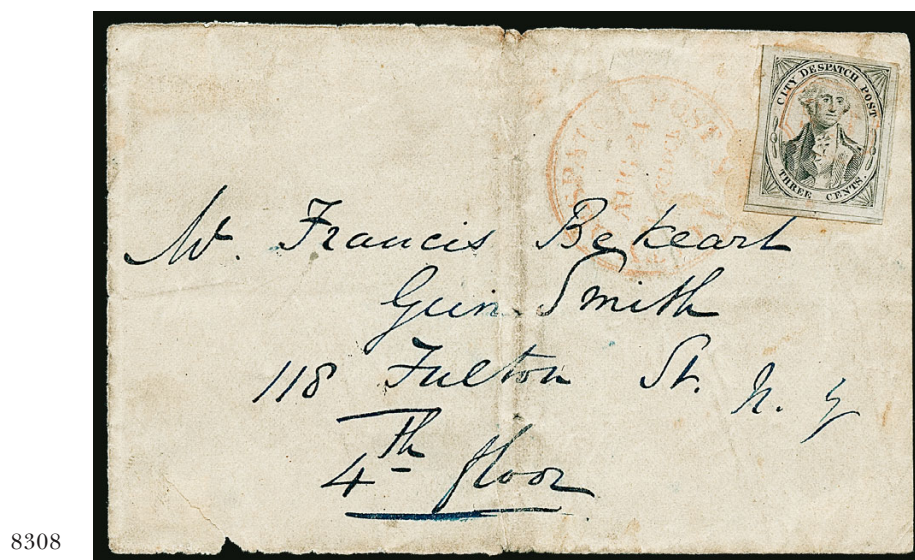 CITY DESPATCH POST
THREE CENTS.
POST
AUG 24
Mr. Francis Bekeart
Gun Smith
118 Fulton St. N. Y
4th floor
8308